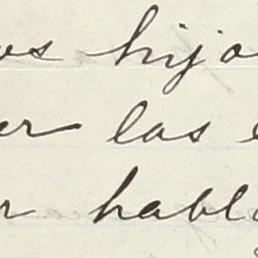 os hijo
er las
r habl